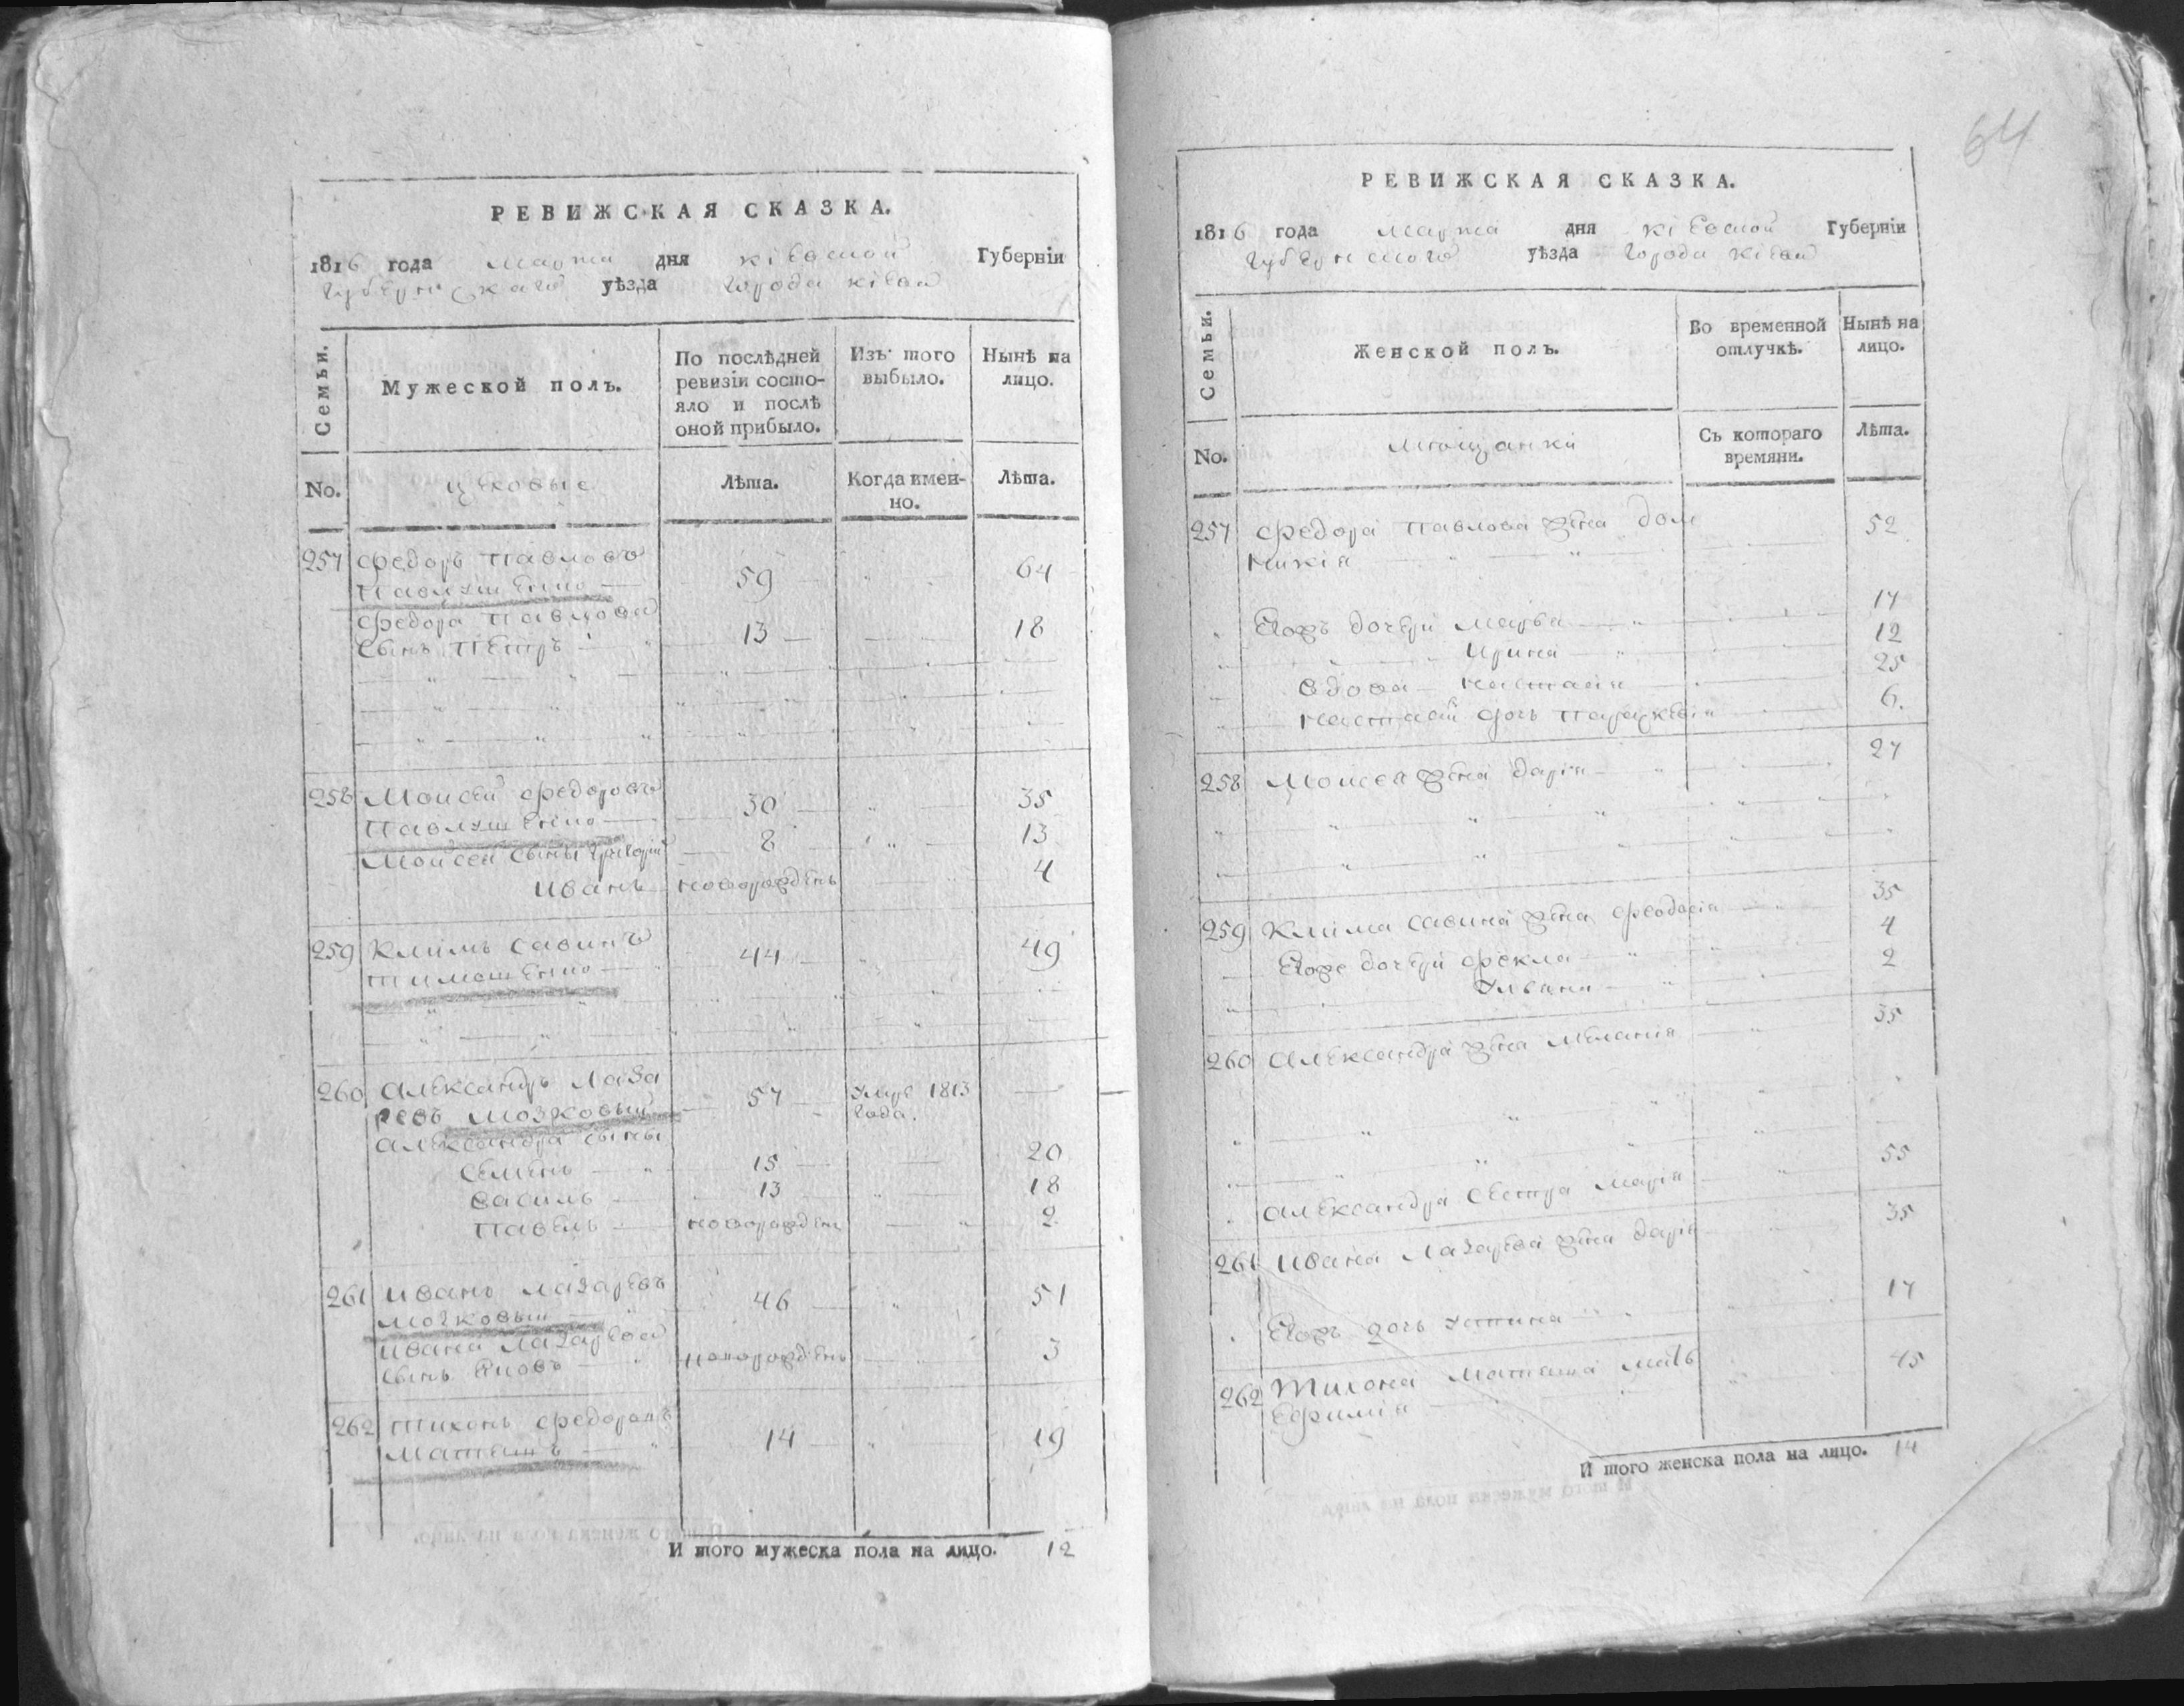 РЕВИЖСКАЯ СКАЗКА.
1816 года марта дня кіевской Губерніи
Губернскаго уѣзда Города кіева
Семьи.
Мужеской полъ.
По послѣдней ревизіи состо-
яло и послѣ
оной прибыло.
Изъ того
выбыло.
Нынѣ на
лицо.
No.
цеховые
Лѣта.
Когда имен-
но.
Лѣта.
257 Федоръ Павловъ
Павлушенко 59 64
Федора Павлова
Сынъ Петръ 13 18
258 Моисей Федоровъ
Павлушенко 30 35
Моисея Сыны Григорій 8 13
Иванъ новорожденъ 4
259 Климъ Савинъ
Тимошенко 44 49
260 Александръ Лаза
ревъ Мозковый 57 Умре 1813
года.
Александра сыны
Семенъ 15 20
Василь 13 18
Павелъ новорожден 2
261 Иванъ Лазаревъ
Мозковый 46 51
Ивана Лазарева
Сынъ Яковъ новорожденъ 3
262 Тихонъ Федоровъ
Матяшъ 14 19
И того мужеска пола на лицо. 12
64
РЕВИЖСКАЯ СКАЗКА.
1816 года марта дня кіевской Губерніи
Губернского уѣзда Города кіева
Семьи.
Женской полъ.
Во временной
отлучкѣ.
Нынѣ на
лицо.
No.
мещанки
Съ котораго
времяни.
Лѣта.
257 Федора Павлова жена Дом
никія 52
Егожъ дочери Марва 17
Ирина 12
вдова Настасія 25
Настасіи дочь Параскевія 6.
258 Моисея жена Дарія 27
259 Клима Савина жена Феодосія 35
Егоже дочери Фекла 4
Уляна 2
260 Александра жена Меланія 35
Александра Сестра Марія 55
261 Ивана Лазарева жена Дарія 35
Егожъ дочь Устина 17
262 Тихона Матяша мать
Ефимія 45
И того женска пола на лицо. 14